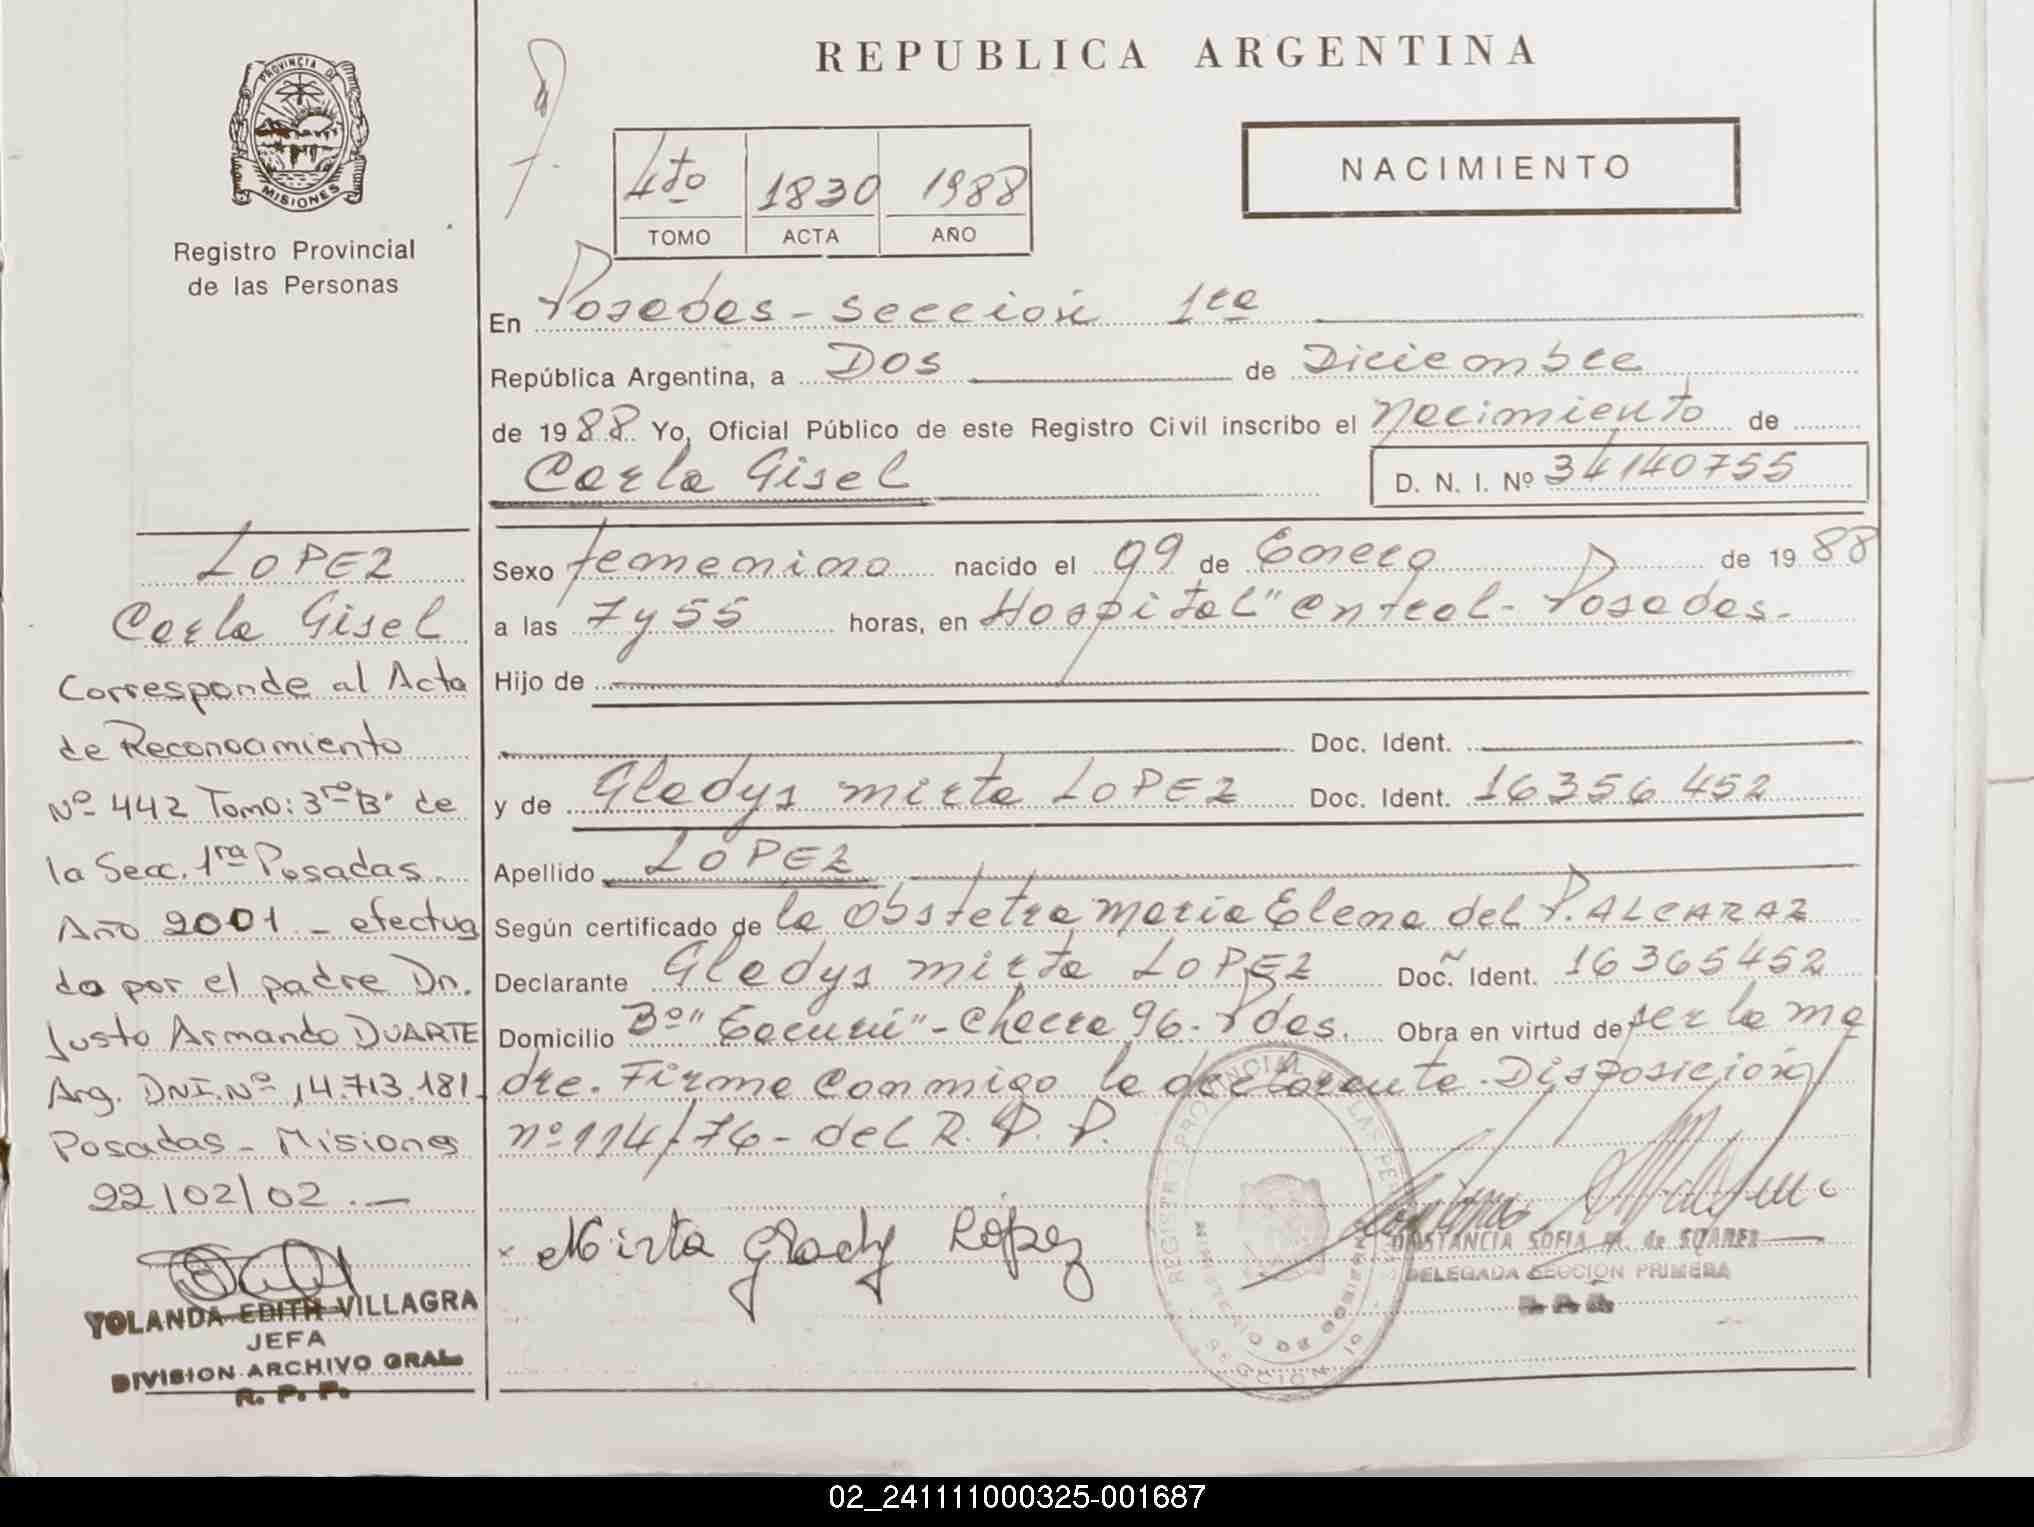 PROVINCIA DE
MISIONES
Registro Provincial
de las Personas
LOPEZ
Carla Gisel
Corresponde al Acta
de Reconocimiento
Nº 442 Tomo: 3ro "B" de
la Secc. 1ra Posadas.
Año 2001 - efectua
do por el padre Dn.
Justo Armando DUARTE
Arg. DNI. Nº 14.713.181.
Posadas - Misiones
22/02/02.-
YOLANDA EDITH VILLAGRA
JEFA
DIVISION ARCHIVO GRAL.
R. P. P.
REPUBLICA ARGENTINA
4to 1830 1988
TOMO ACTA AÑO
NACIMIENTO
En Posadas - Sección 1ra
República Argentina, a Dos de Diciembre
de 1988 Yo, Oficial Público de este Registro Civil inscribo el Nacimiento de
Carla Gisel D. N. I. Nº 34140755
Sexo femenino nacido el 09 de Enero de 1988
a las 7 y 55 horas, en Hospital "Central - Posadas.
Hijo de
Doc. Ident.
y de Gladys Mirta LOPEZ Doc. Ident. 16356452
Apellido LOPEZ
Según certificado de la Obstetra Maria Elena del P. ALCARAZ
Declarante Gladys Mirta LOPEZ Doc. Ident. 16365452
Domicilio Bº " - Chacra 96. Pdas. Obra en virtud de ser la ma
dre. Firma conmigo la declarante. Disposición
nº 114/76 - del R. P. P.
x Mirta Glady López
CONSTANCIA SOFIA M. de SUAREZ
DELEGADA SECCION PRIMERA
02_241111000325-001687